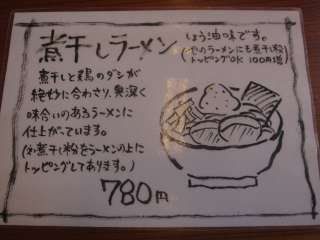 煮干しラーメン
しょう油味です。
(他のラーメンにも煮干し粉
トッピングOK 100円増
煮干しと鶏のダシが
絶妙に合わさり、奥深く
味合いのあるラーメンに
仕上がっています。
(煮干し粉をラーメンの上に
トッピングしてあります。)
780円